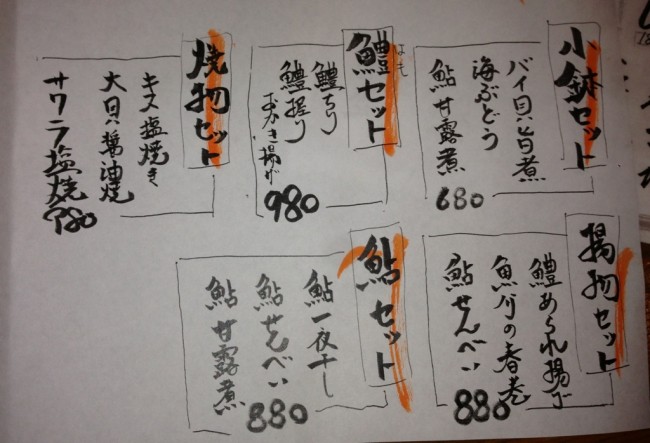 小鉢セット
バイ貝旨煮
海ぶどう
鮎甘露煮
680
鱧セット
はも
鱧ちり
鱧握り
おかき揚げ
980
焼物セット
キス塩焼き
大貝醤油焼
サワラ塩焼
980
揚物セット
鱧あられ揚げ
魚介の春巻
鮎せんべい
880
鮎セット
鮎一夜干し
鮎せんべい
鮎甘露煮
880